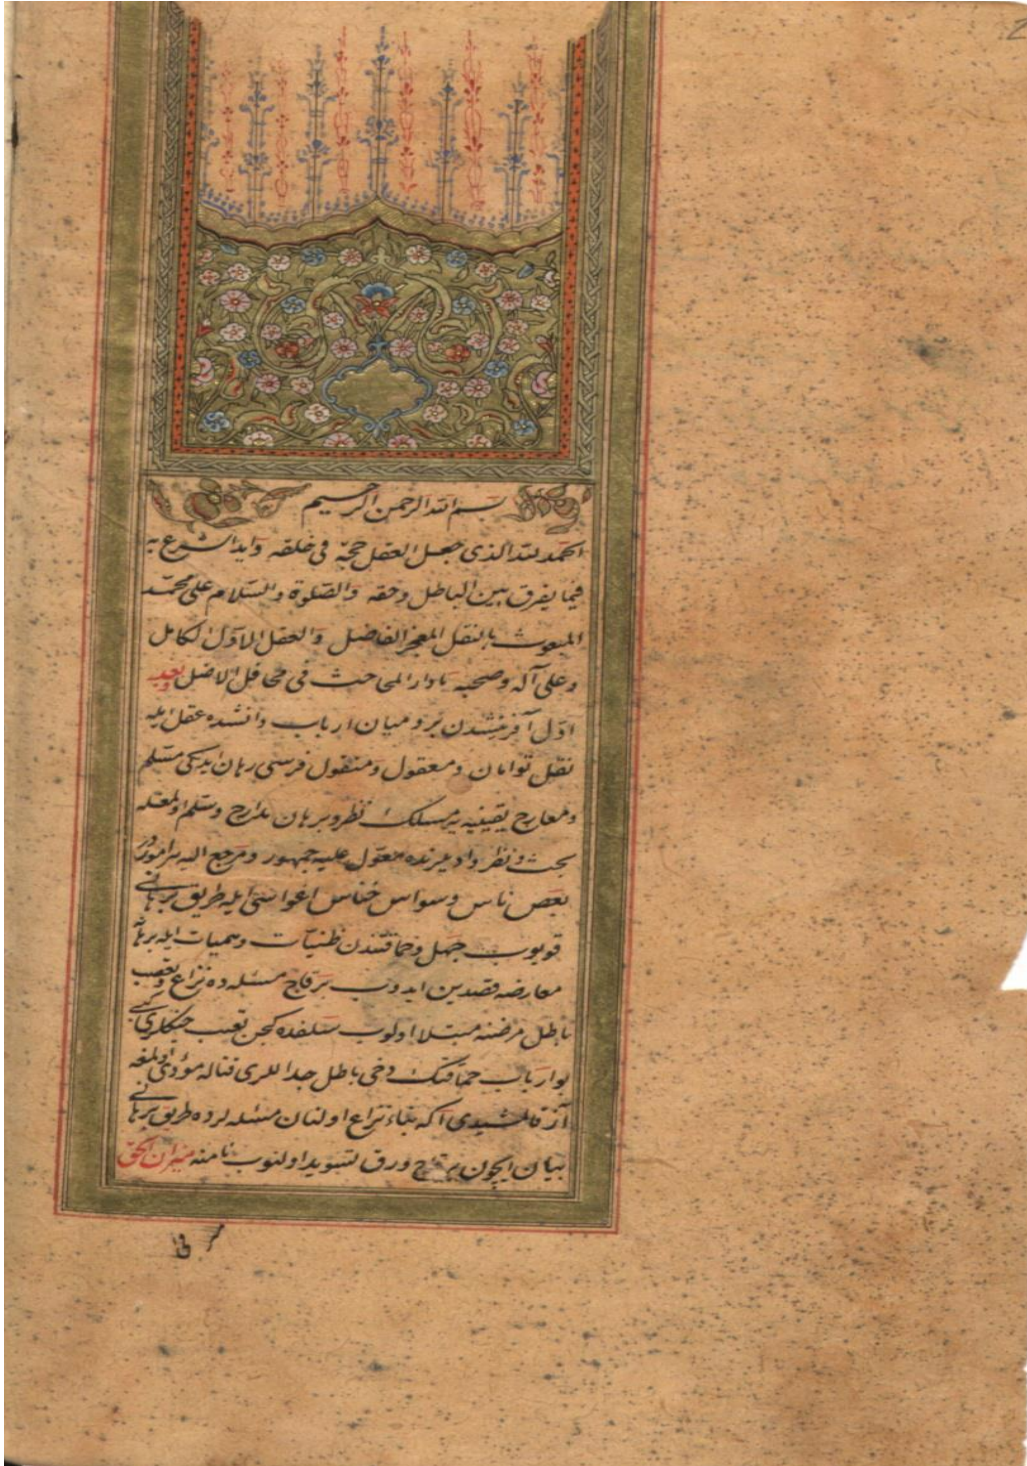 2
بسم الله الرحمن الرحيم
الحمد لله الذى جعل العقل حجة فى خلقه وايد الشرع به
فيما يفرق بين الباطل وحقه والصلوة والسلام على محمد
المبعوث بالنقل المعجز الفاضل والعقل الاول الكامل
وعلى آله وصحبه مادار المباحث فى محافل الافاضل وبعد
اول آفرينشدن برو ميان ارباب دانشده عقل ايله
نقل توامان ومعقول ومنقول فرسى رهان ايدكى مسلم
ومعارج يقينيه يه مسلك نظر وبرهان مدارج وسلم اولمغله
بحث ونظر واديلرنده معول عليه جمهور ومرجع اليه هر امور در
بعض ناس وسواس خناس اغواسى ايله طريق برهانى
قويوب جهل وحماقتندن ظنيات وهميات ايله برهانه
معارضه قصدين ايدوب برقاج مسئله ده نزاع وتعصب
باطل مرضنه مبتلا اولوب سلفده كچن تعصب جنكلرى كبى
بو ارباب حماقتك دخى باطل جداللرى قتاله مؤدى اولمغه
آز قالمشيدى اكه بناء نزاع اولنان مسئله لرده طريق برهانى
بيان ايچون برقاج ورق تسويد اولنوب نامنه ميزان الحق